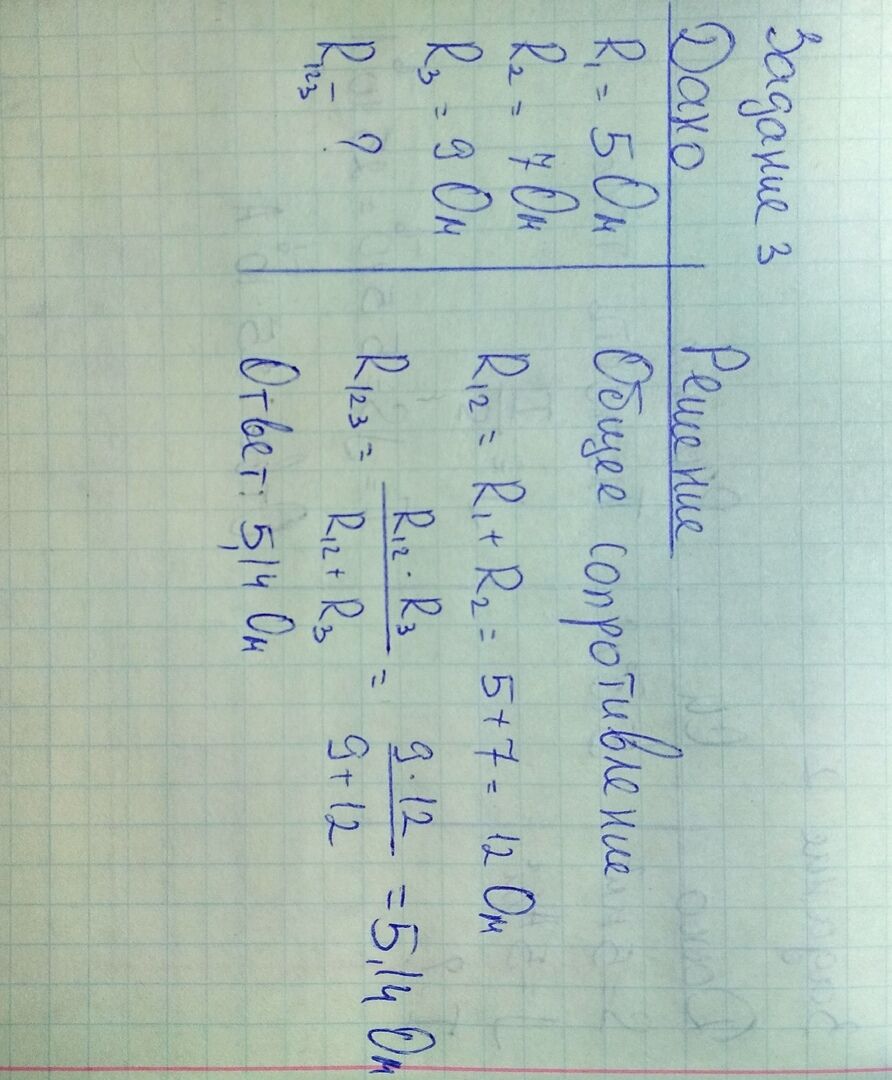 Задание 3
Дано
R₁ = 5 Ом
R₂ = 7 Ом
R₃ = 9 Ом
R₁₂₃ - ?
Решение
Общее сопротивление
R₁₂ = R₁ + R₂ = 5 + 7 = 12 Ом
R₁₂₃ = (R₁₂ · R₃)/(R₁₂ + R₃) = (9 · 12)/(9 + 12) = 5,14 Ом
Ответ: 5,14 Ом